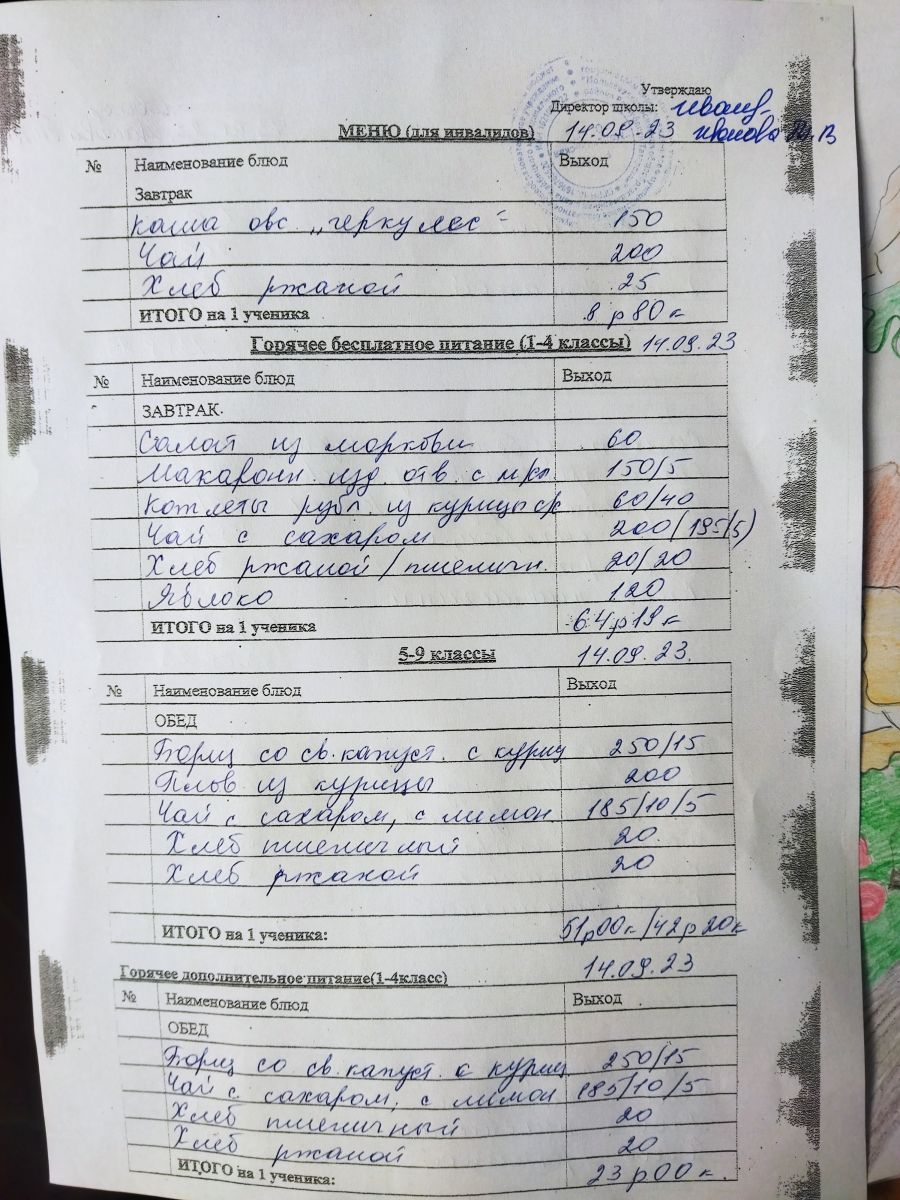 Утверждаю
Директор школы:
МЕНЮ (для инвалидов) 14.09.23
№ Наименование блюд Выход
Завтрак
Каша овс „геркулес" 150
Чай 200
Хлеб ржаной 25
ИТОГО на 1 ученика 8 р 80 к
Горячее бесплатное питание (1-4 классы) 14.09.23
№ Наименование блюд Выход
ЗАВТРАК.
Салат из моркови 60
Макарон. изд. отв. с м/сл. 150/5
Котлеты рубл. из курицы 60/40
Чай с сахаром 200(195/5)
Хлеб ржаной/пшеничн. 20/20
Яблоко 120
ИТОГО на 1 ученика 64р19к
5-9 классы 14.09.23.
№ Наименование блюд Выход
ОБЕД
Борщ со св. капуст. с куриц 250/15
Плов из курицы 200
Чай с сахаром, с лимон 185/10/5
Хлеб пшеничный 20
Хлеб ржаной 20
ИТОГО на 1 ученика: 51р00к/42р20к
14.09.23
Горячее дополнительное питание(1-4класс)
№ Наименование блюд Выход
ОБЕД
Борщ со св. капуст. с куриц 250/15
Чай с сахаром, с лимон 185/10/5
Хлеб пшеничный 20
Хлеб ржаной 20
ИТОГО на 1 ученика: 23р00к.